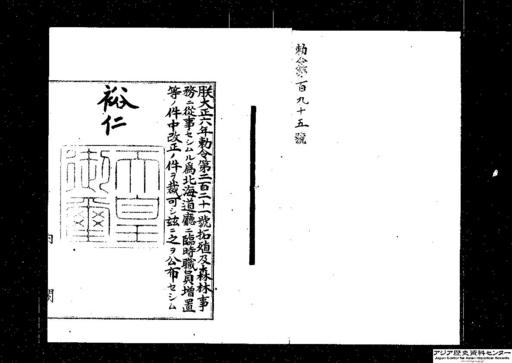 勅令第二百九十五號
朕大正六年勅令第二百二十一號拓殖及森林事
務ニ從事セシムル爲北海道廳ニ臨時職員増置
等ノ件中改正ノ件ヲ裁可シ玆ニ之ヲ公布セシム
裕仁
天皇御璽
内閣
アジア歴史資料センター
Japan Center for Asian Historical Records